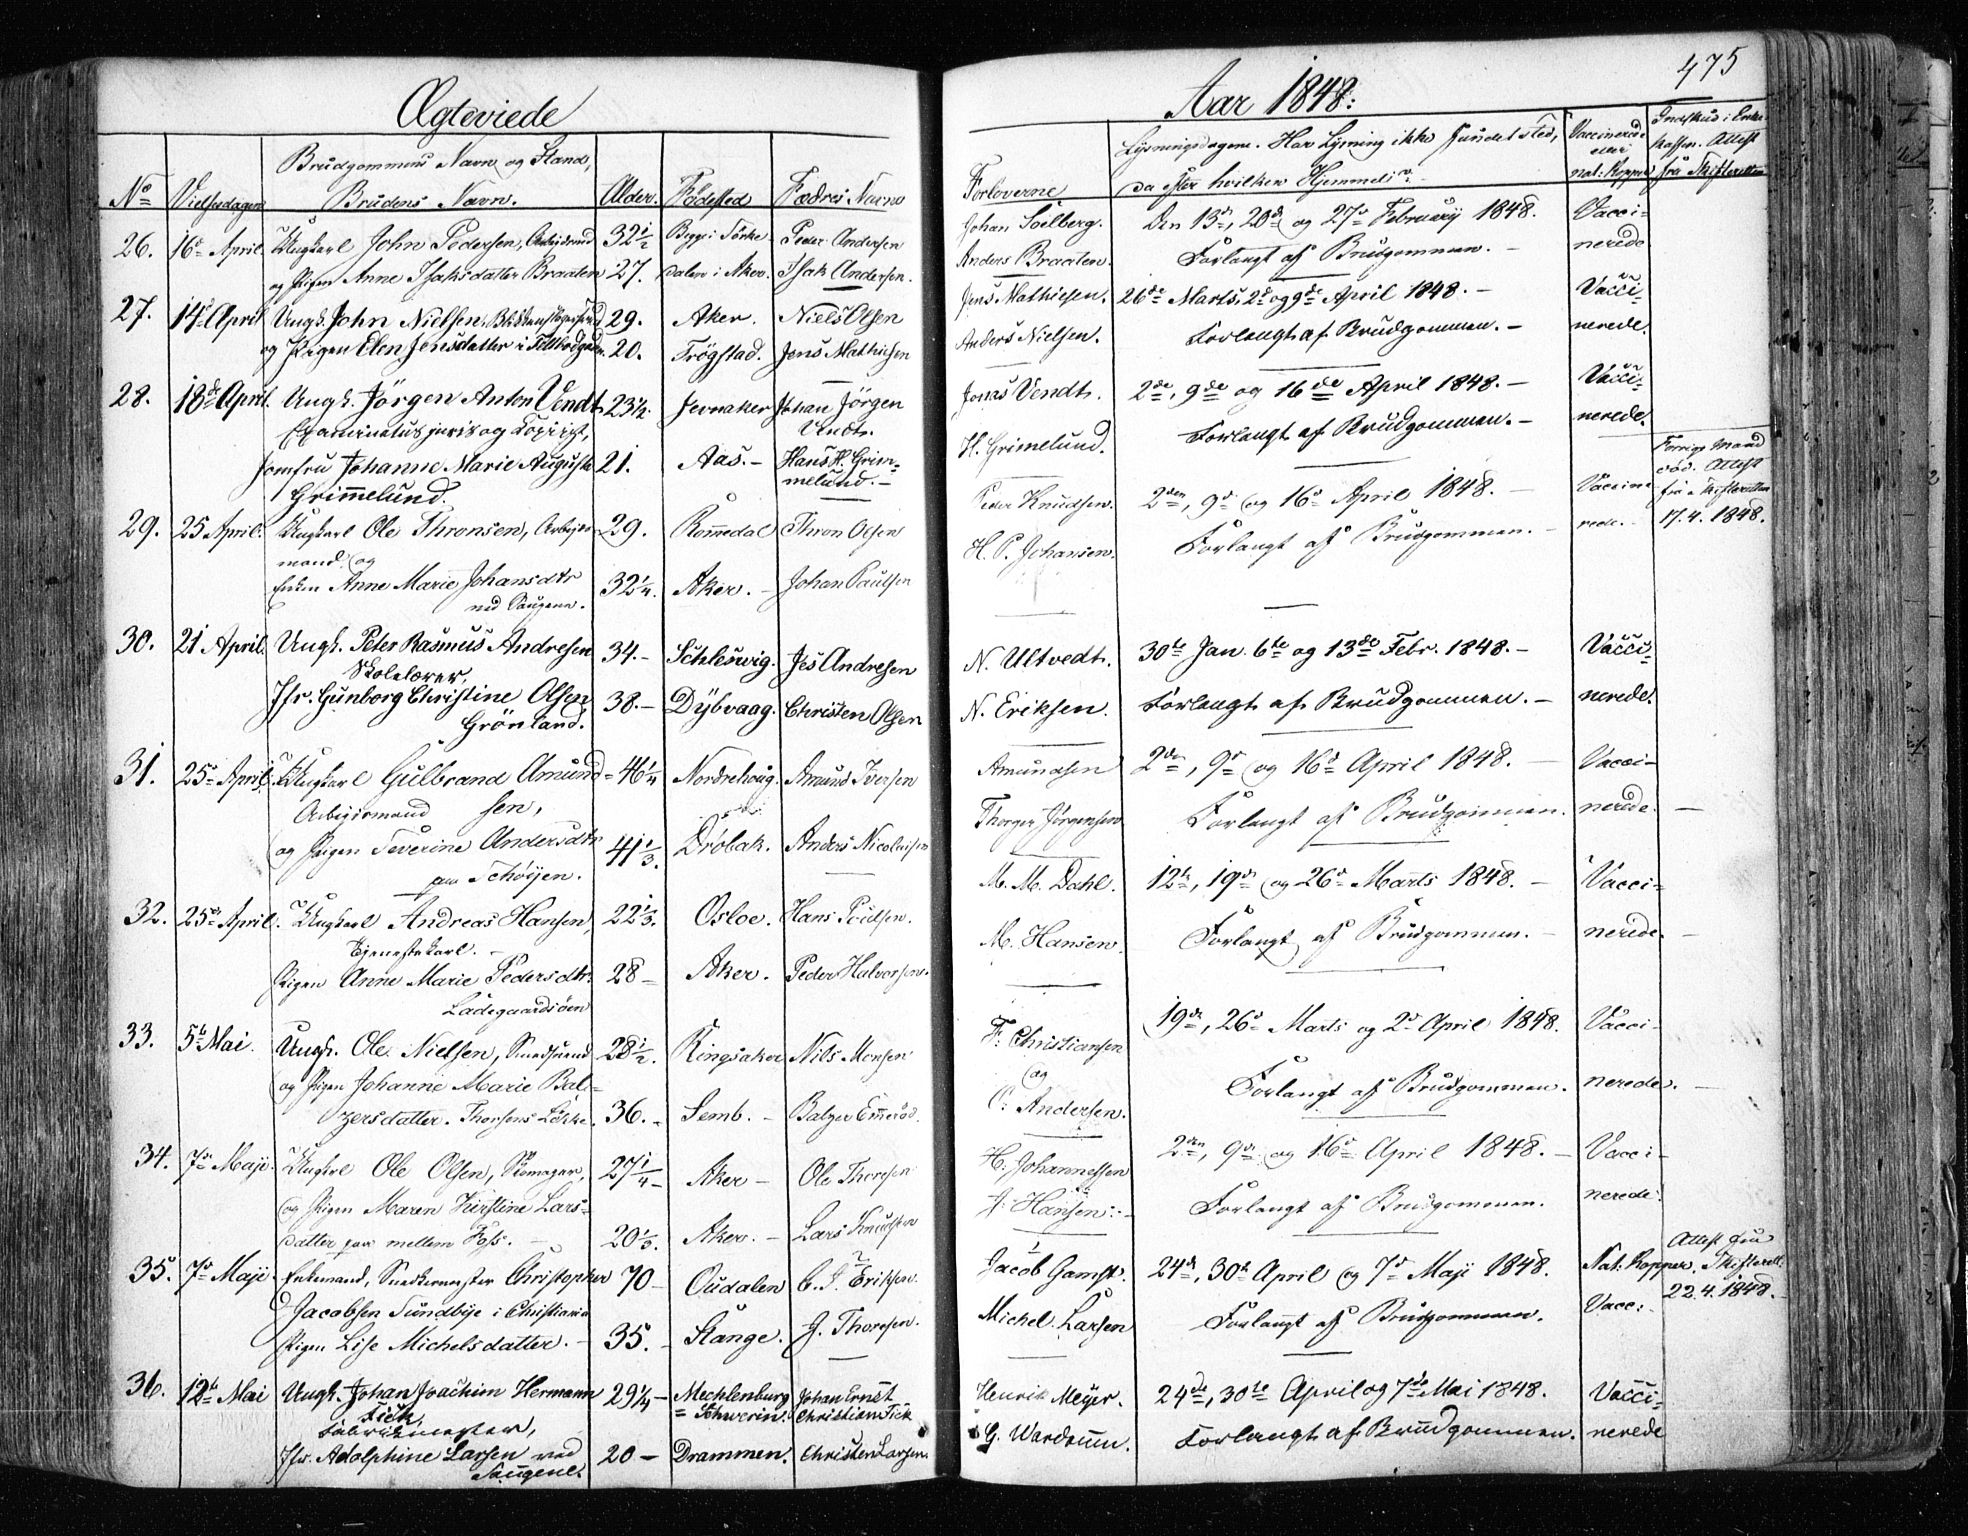 Ægteviede
No Vielsesdagen Brudgommens Navn og Stand, Brudens Navn. Alder. Fødested Fædres Navne
26. 16de April Ungkarl John Pedersen, Arbejdsmd 32 1/2 Peder Andersen
og Pigen Anne Isaksdatter Braaten 27. dalen i Aker. Isak Andersen.
27. 14de April Ungk. John Nielsen, 29. Aker. Niels Olsen
og Pigen Elen Jensdatter i 20. Trögstad. Jens Mathiesen
28. 18de April. Ungk. Jörgen Anton Vendt 23 1/2. Jevnaker Johan Jörgen
Examinatus juris og Copiist, Vendt.
Jomfru Johanne Marie Augusta 21. Aas. – Hans H. Grim-
Grimelund. melund. –
29. 25 April. Ungkarl Ole Thronsen, Arbejds- 29. Romedal Thron Olsen
mand, og
Enken Anne Marie Johansdtr 32 1/4. Aker. – Johan Paulsen
ved Saugene.
30. 21 April. Ungk. Peter Rasmus Andresen 34. – Schleswig. Jes Andresen
Skolelærer,
Jfr. Gunborg Christine Olsen 38. – Dÿbvaag. Christen Olsen
Grönland.
31. 25de April. Ungkarl Gulbrand Amund= 46 1/4 Nordrehoug. Amund Iversen
Arbejdsmand sen,
og Pigen Severine Andersdtr 41 1/3. Dröbak. Anders Nicolaisen
paa Schöijen.
32. 25de April. Ungkarl Andreas Hansen, 22 1/3. Osloe. Hans
Tjenestekarl. –
Pigen Anne Marie Pedersdtr. 28 – Aker. Peder Halvorsen.
Ladegaardsöen
33. 5te Mai. Ungk. Ole Nielsen, Smedsvend 28 1/2. Ringsaker Nils Monsen
og Pigen Johanne Marie Bal-
zersdatter. Thorsens Løkke. 36. – Semb. – Balzer
34. 7de Maji. Ungkarl Ole Olsen, Skomager, 27 1/4 – Aker – Ole Thoresen
og Pigen Maren Kirstine Lars-
datter paa mellem Foss. – 20 1/3. Aker. – Lars Knudsen
35. 7de Maji. Enkemand, Snedkermester Christopher 70 – Oudalen Eriksen.
Jacobsen Sundbye i Christiania
Pigen Lise Michelsdatter. – 35. – Stange. G. Thoresen.
36. 12te Mai Ungk. Johan Joachim Hermann 29 1/4 – Mechlenburg Johan Ernst
Fick, = Schwerin. Christian Fick
Fabrikmester,
Jfr. Adolphine Larsen ved 20 – Drammen. Christen Larsen.
Saugene.
475
Aar 1848:
Forloverne Lysningsdagene. Har Lysning ikke fundet Sted, da efter hvilken Hjemmel. Vaccinerede eller nat: Kopper Indskud i Enkekassen. Attest fra Skifteretten
Johan Soelberg. Den 13de, 20de og 27de Februarij 1848. Vacci-
Anders Braaten. Forlangt af Brudgommen. – nerede
Jens Mathiesen. 26de Marts, 2de og 9de April 1848. – Vacci-
Anders Nielsen. Forlangt af Brudgommen. – nerede.
Jonas Vendt. 2de, 9de og 16de April 1848. – Vacci-
H. Grimelund. Forlangt af Brudgommen. – nerede.
Forrige Mand
död. Attest
Peder Knudsen. 2den, 9de og 16de April 1848. – Vaccine- fra Skifteretten
H. P. Johansen. Forlangt af Brudgommen. – rede. – 17.4.1848.
N. Ultvedt. 30te Jan. 6te og 13de Febr. 1848. – Vacci-
N. Eriksen. Forlangt af Brudgommen. – nerede.
Amundsen 2den, 9de og 16de April 1848. – Vacci-
Thorger Jörgensen Forlangt af Brudgommen. nerede. –
M. M. Dahl. 12te, 19de og 26de Marts 1848. – Vacci-
M. Hansen. Forlangt af Brudgommen. – nerede. –
F. Christiansen 19de, 26de Marts og 2de April 1848. Vacci-
og Forlangt af Brudgommen. nerede. –
C. Andersen.
H. Johannessen 2den, 9de og 16de April 1848. – Vacci-
Hansen. – Forlangt af Brudgommen. nerede.
Attest fra
Jacob Gamst. 24de, 30te April og 7de Maji 1848. Nat. Kopper. Skifterett.
Michel Larsen Forlangt af Brudgommen. Vacc: 22.4.1848. –
Henrik Meÿer. 24de, 30te April og 7de Mai 1848. Vacci-
G. Wardrum. Forlangt af Brudgommen. nerede